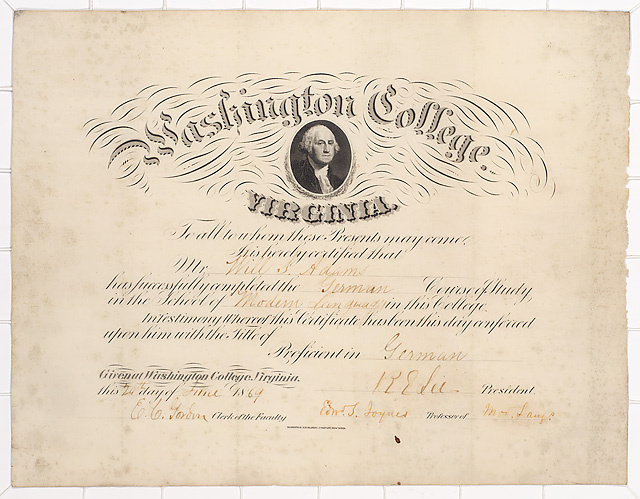 Washington College.
VIRGINIA.
To all to whom these Presents may come,
It is hereby certified that
Mr. Will S. Adams
has successfully completed the German Course of Study,
in the School of Modern Languages in this College.
In testimony Whereof this Certificate has been this day conferred
upon him with the Title of
Proficient in German
Given at Washington College, Virginia.
this day of June 1869
R E Lee President.
E. C. Gordon Clerk of the Faculty
Edwd. S. Joynes Professor of Mod. Langs.